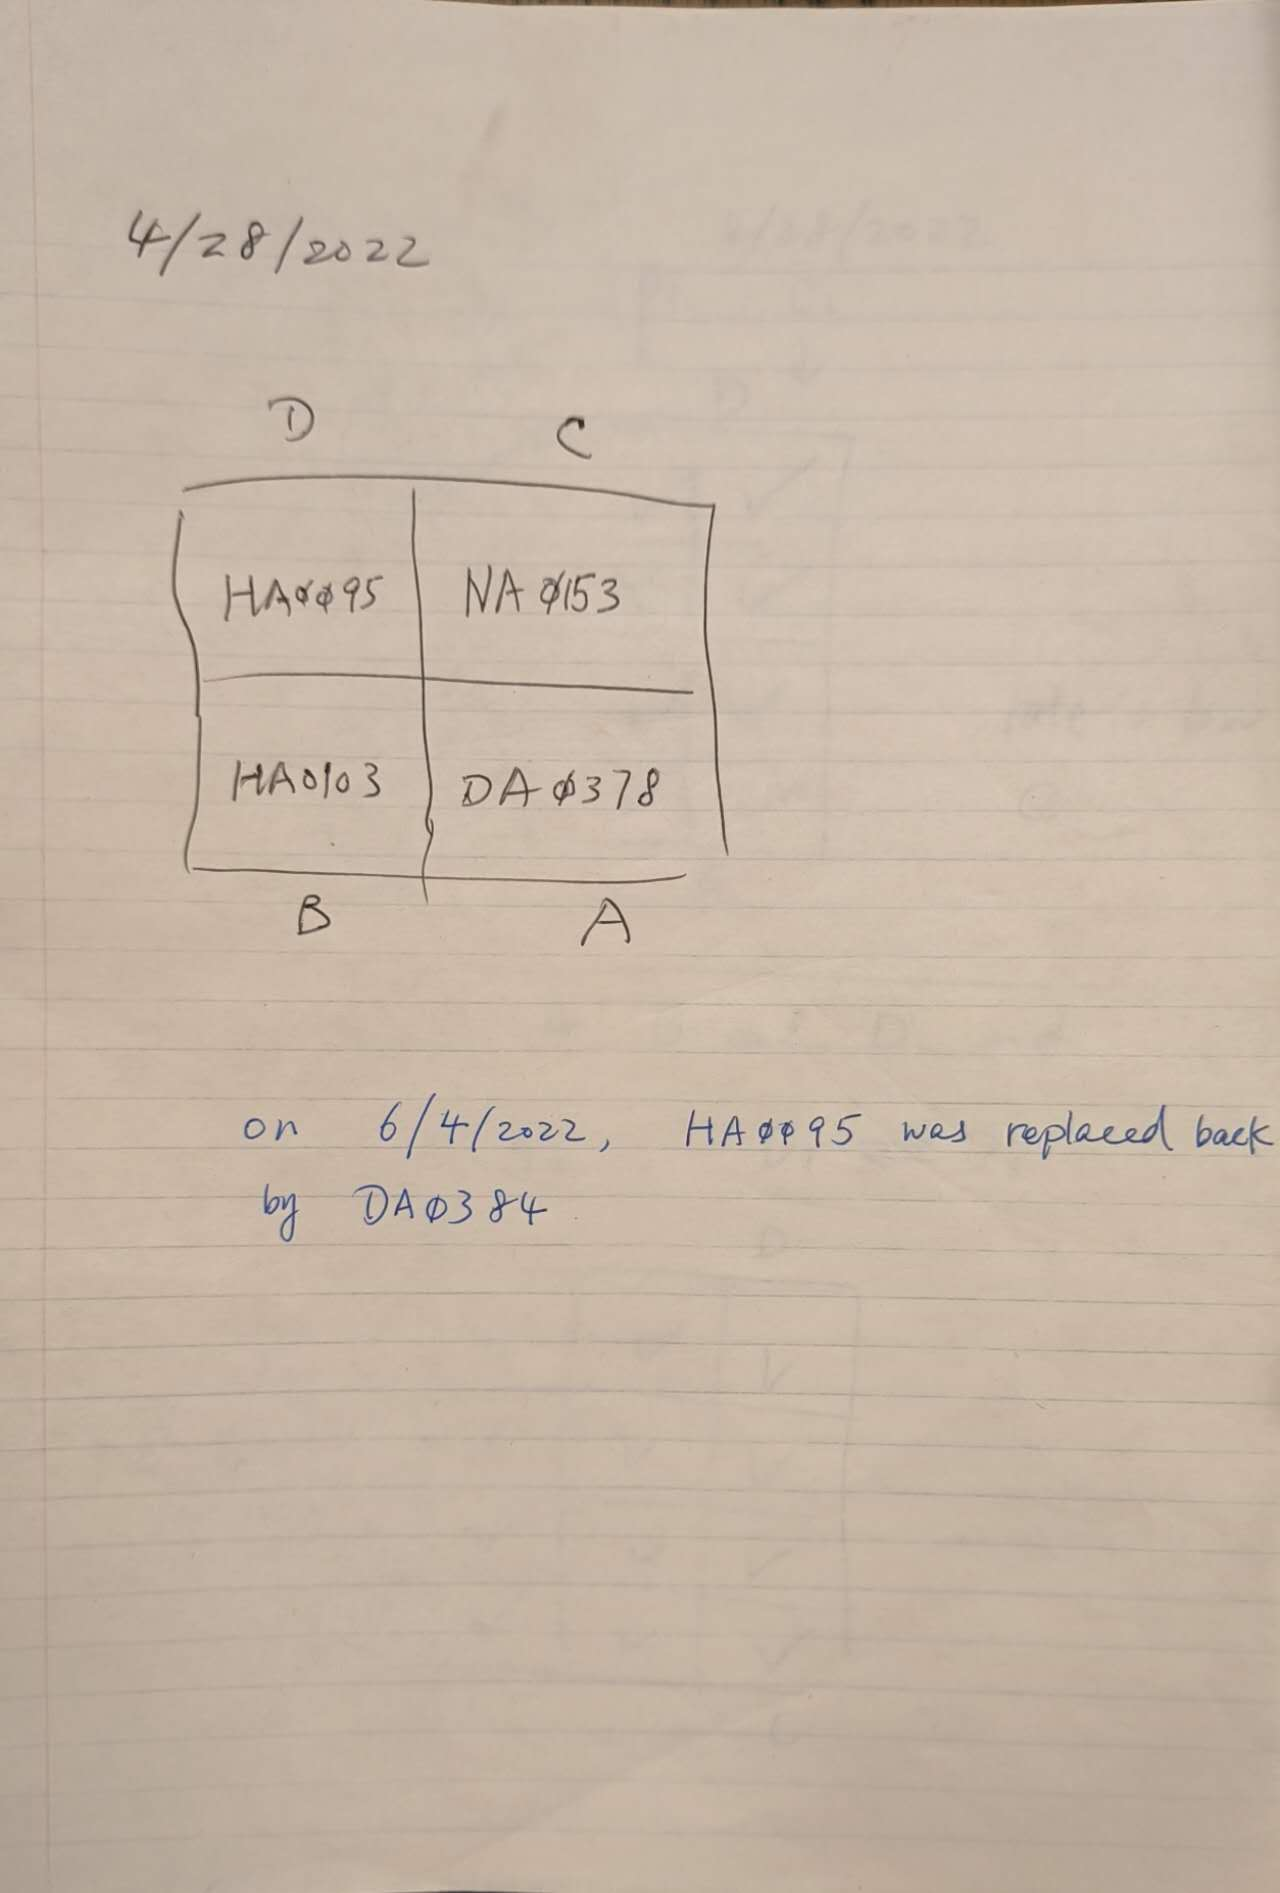 4/28/2022
D C
HA0095 NA0153
HA0103 DA0378
B A
on 6/4/2022, HA0095 was replaced back
by DA0384